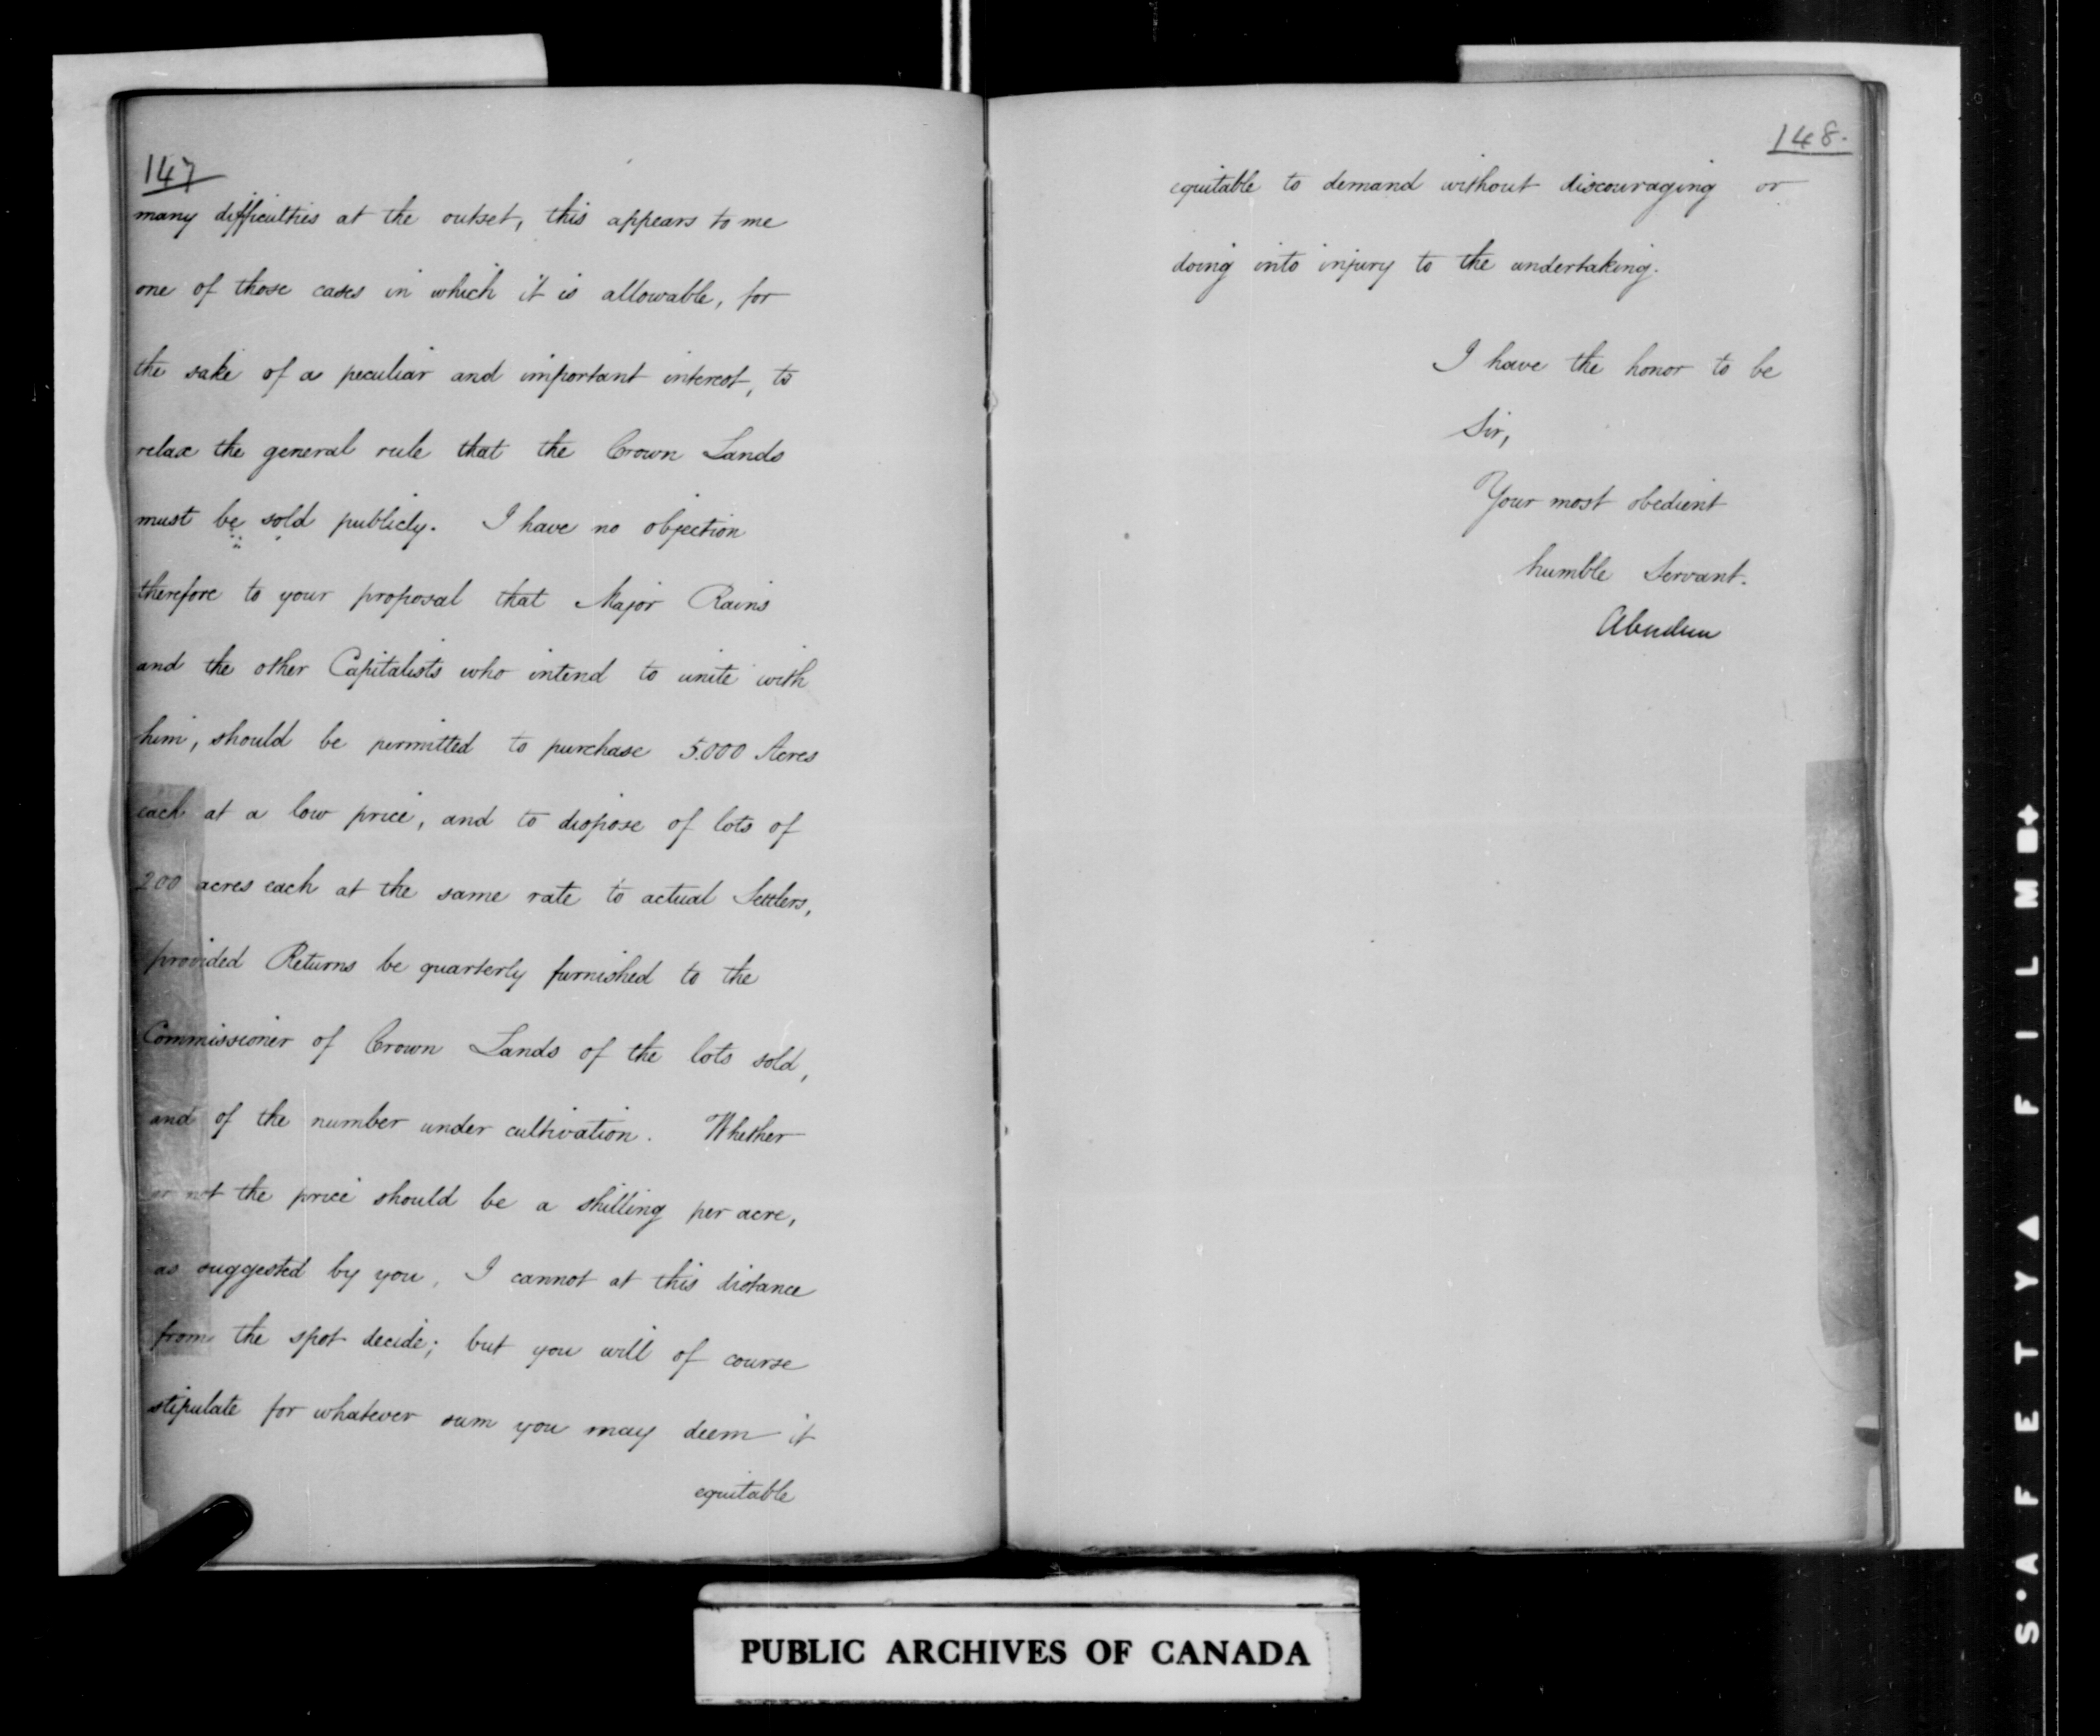 147
many difficulties at the outset, this appears to me
one of those cases in which it is allowable, for
the sake of a peculiar and important interest, to
relax the general rule that the Crown Lands
must be sold publicly. I have no objection
therefore to your proposal that Major Rains
and the other Capitalists who intend to unite with
him, should be permitted to purchase 5.000 Acres
each at a low price, and to dispose of lots of
200 acres each at the same rate to actual Settlers,
provided Returns be quarterly furnished to the
Commissioner of Crown Lands of the lots sold,
and of the number under cultivation. Whether
or not the price should be a shilling per acre,
as suggested by you, I cannot at this distance
from the spot decide; but you will of course
stipulate for whatever sum you may deem it
equitable
148.
equitable to demand without discouraging or
doing into injury to the undertaking.
I have the honor to be
Sir,
Your most obedient
humble Servant.
Aberdeen
PUBLIC ARCHIVES OF CANADA
S'AFETY FILM